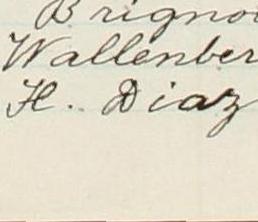 Brigno
Wallenber
H. Diaz